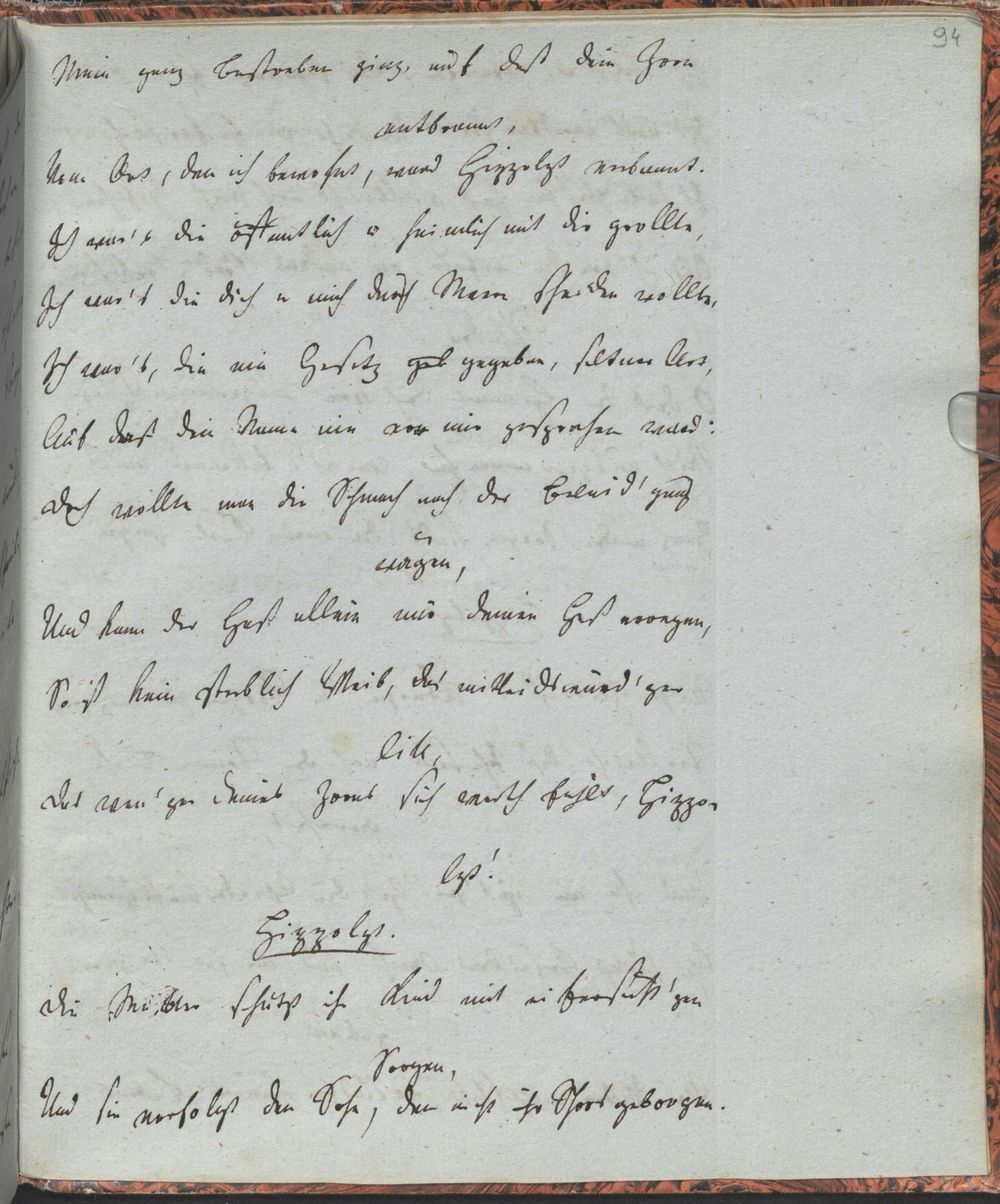 94
Mein ganz bestreben ging, auf daß dein Zorn
entbrannt,
Vom Ort, den ich bewohnt, ward Hippolyt verbannt.
Ich war's die öffentlich u heimlich mit dir grollte,
Ich war's die dich u mich durch Meere scheiden wollte,
Ich war's, die ein Gesetz gab gegeben, seltner Art,
Auf daß dein Name nie vor mir gesprochen ward:
Doch wollte man die Schmach nach der Beleid'gung
wägen,
Und kann der Haß allein nur deinen Haß erregen,
So ist kein sterblich Weib, das mitleidswürd'ger
litt,
Das wen'ger deines Zorns sich werth, Hippo-
lyt!
Hippolyt.
Die Mutter schützt ihr Kind mit eifersücht'gen
Sorgen,
Und sie verfolgt den Sohn, den nicht ihr Schoos geborgen.